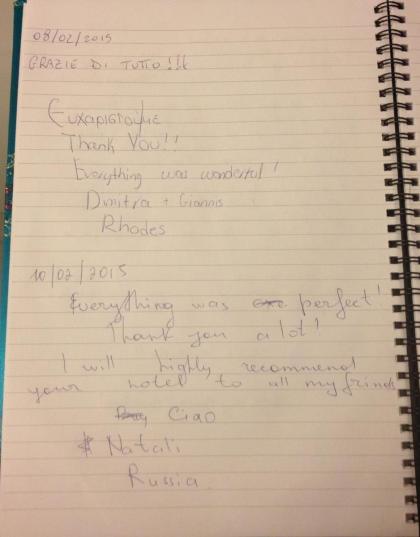 08/02/2015
GRAZIE DI TUTTO!!!
Ευχαριστούμε
Thank You!!
Everything was wonderful!
Dimitra + Giannis
Rhodes
10/02/2015
Everything was perfect!
Thank you a lot!
I will highly recommend
your hotel to all my frinds
Ciao
Natali
Russia.